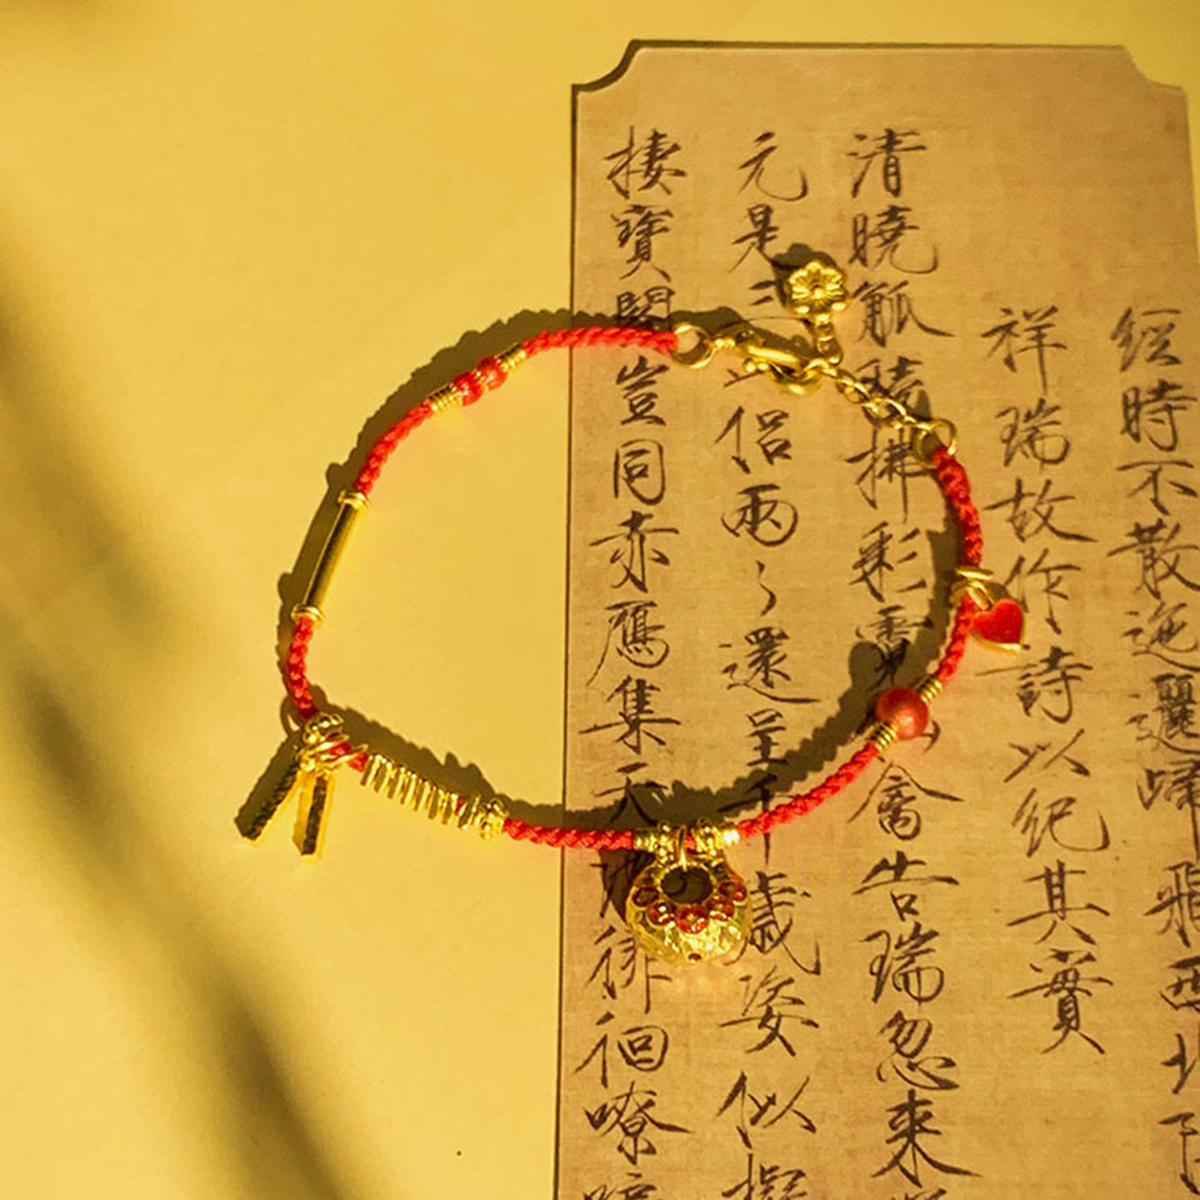 經時不散迤邐歸飛西北
祥瑞故作詩以紀其實
清曉觚稜拂彩霓仙禽告瑞忽來
元是三山侶兩〻還呈千歲姿似擬
棲寶閣豈同赤鴈集天池徘徊嘹唳